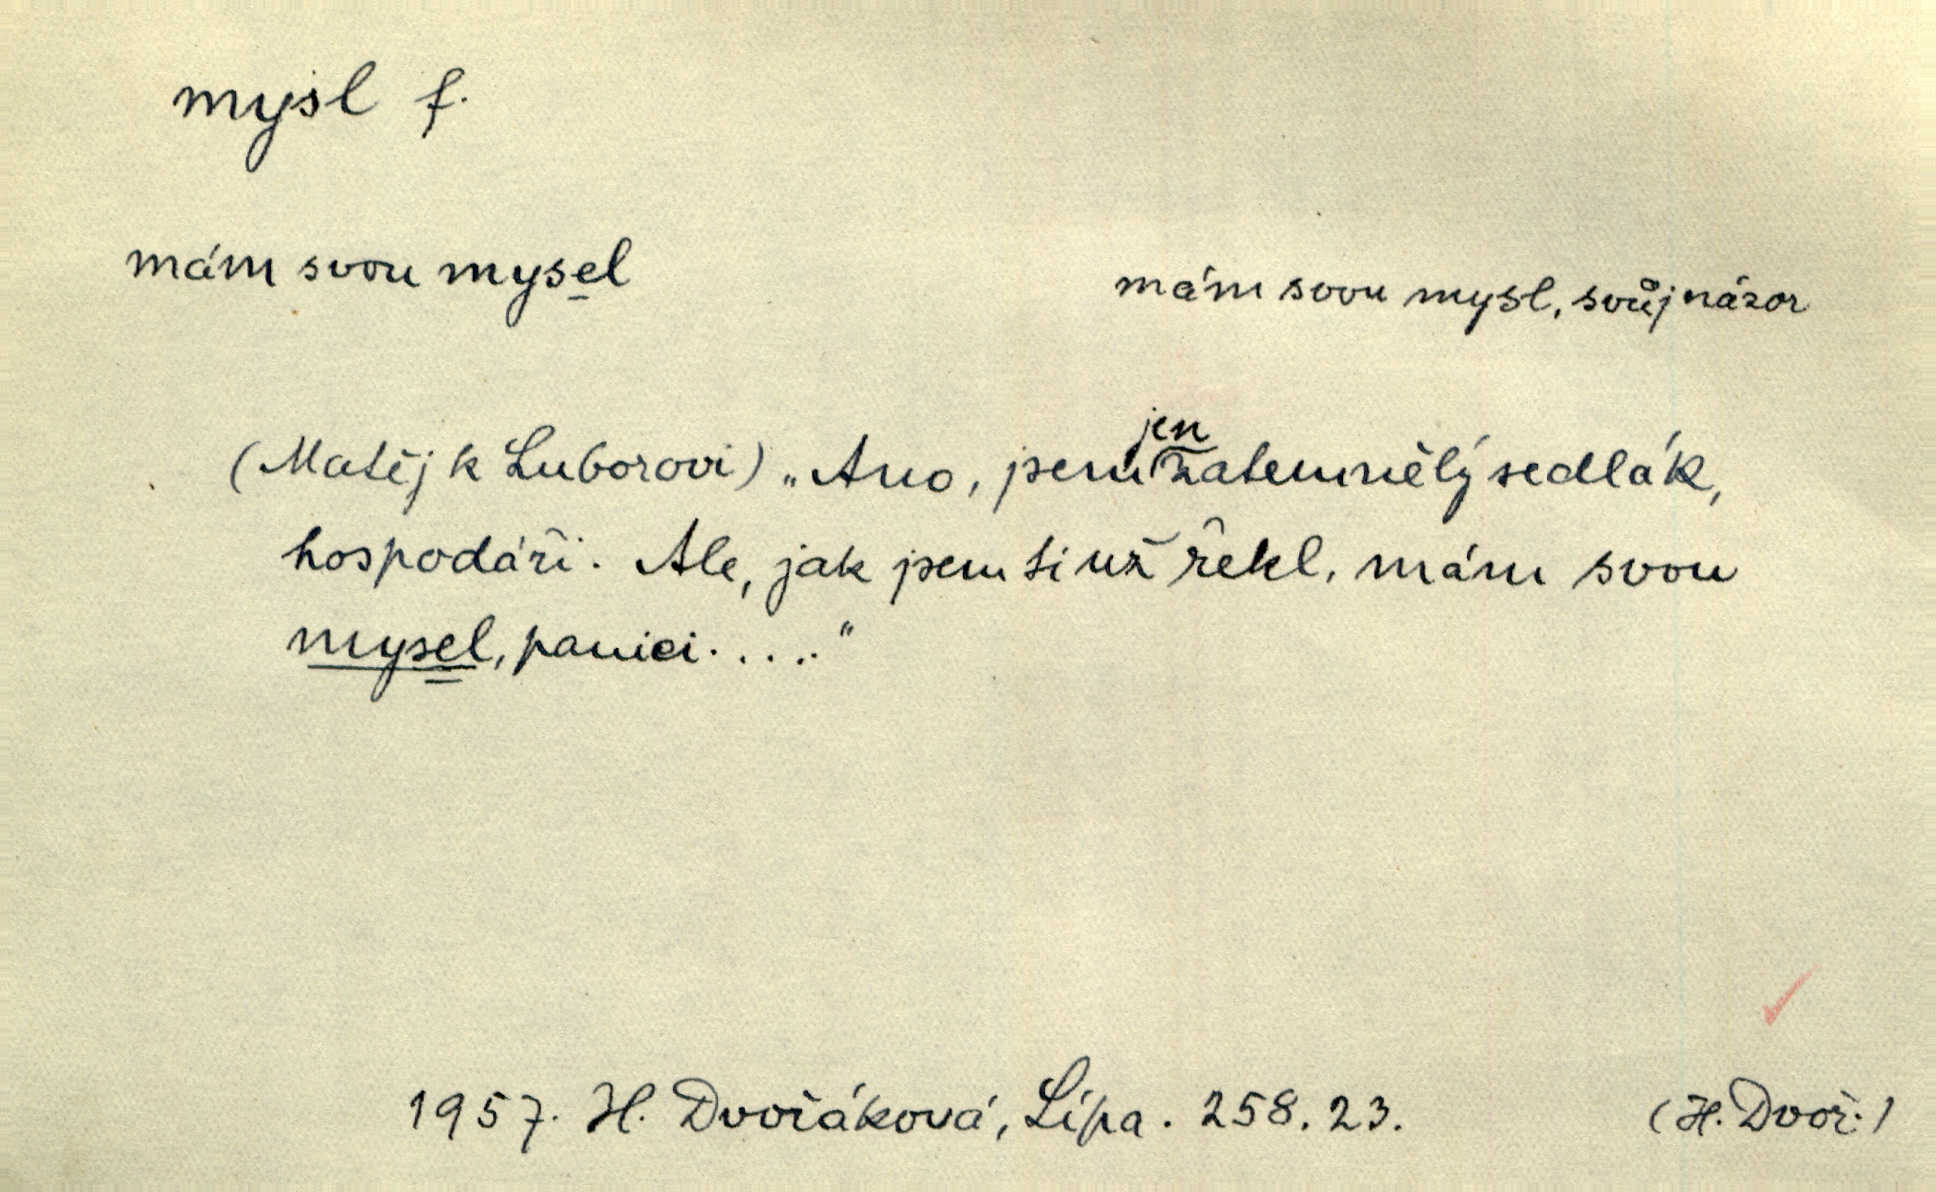 mysl f.
mám svou mysel
mám svou mysl, svůj názor
(Matěj k Luborovi) „Ano, jsem jen zatemnělý sedlák,
hospodáři. Ale, jak jsem ti už řekl, mám svou
mysel, panici.....“
1957. H. Dvořáková, Lípa. 258.23.
(H. Dvoř.)